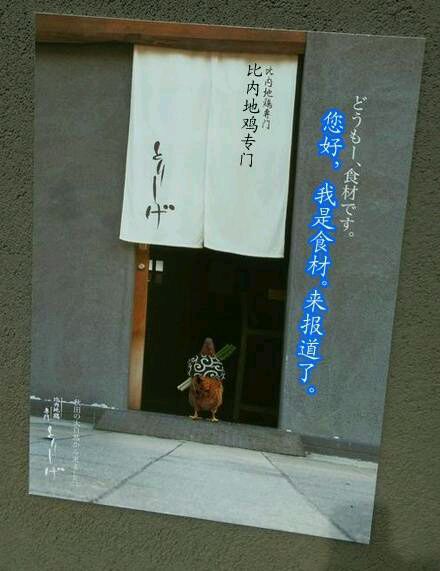 どうもー、食材です。
您好，我是食材。来报道了。
比内地鶏専门
比内地鸡专门
とりしげ
比内地鶏
専门
とりしげ